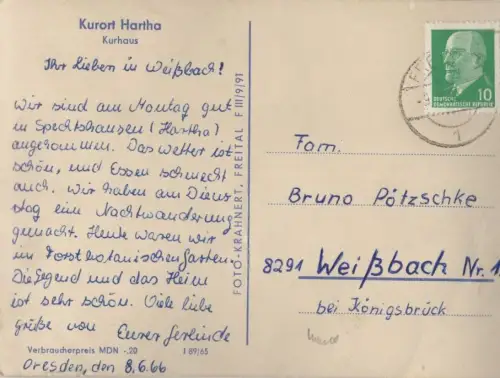 Kurort Hartha
Kurhaus
Ihr Lieben in Weißbach!
Wir sind am Montag gut
in Spechtshausen (Hartha)
angekommen. Das Wetter ist
schön, und Essen schmeckt
auch. Wir haben am Diens
tag eine Nachtwanderung
gemacht. Heute waren wir
im Forstbotanischengarten.
Die Gegend und das Heim
ist sehr schön. Viele liebe
grüße von Eurer Gerlinde
Verbraucherpreis MDN -.20 I 89/65
Dresden, den 8.6.66
FOTO-KRAHNERT, FREITAL F III/9/91
10
DEUTSCHE
DEMOKRATISCHE REPUBLIK
1
Fam.
Bruno Pötzschke
8291 Weißbach Nr. 1
bei Königsbrück